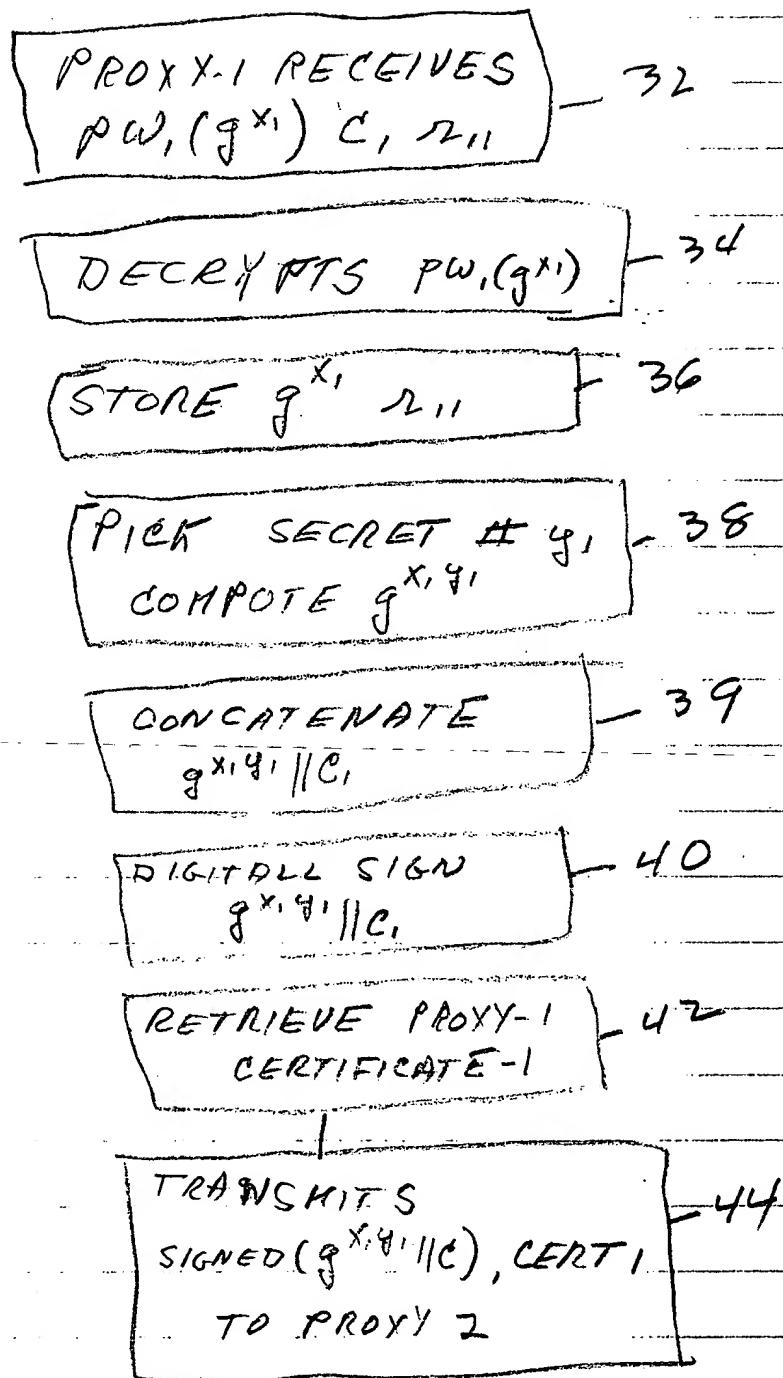 PROXY-1 RECEIVES
PW₁(g^x₁) C₁ r₁₁
32
DECRYPTS PW₁(g^x₁)
34
STORE g^x₁ r₁₁
36
PICK SECRET # y₁
COMPOTE g^x₁y₁
38
CONCATENATE
g^x₁y₁||C₁
39
DIGITALL SIGN
g^x₁y₁||C₁
40
RETRIEVE PROXY-1
CERTIFICATE-1
42
TRANSMITS
SIGNED(g^x₁y₁||C), CERT₁
TO PROXY 2
44